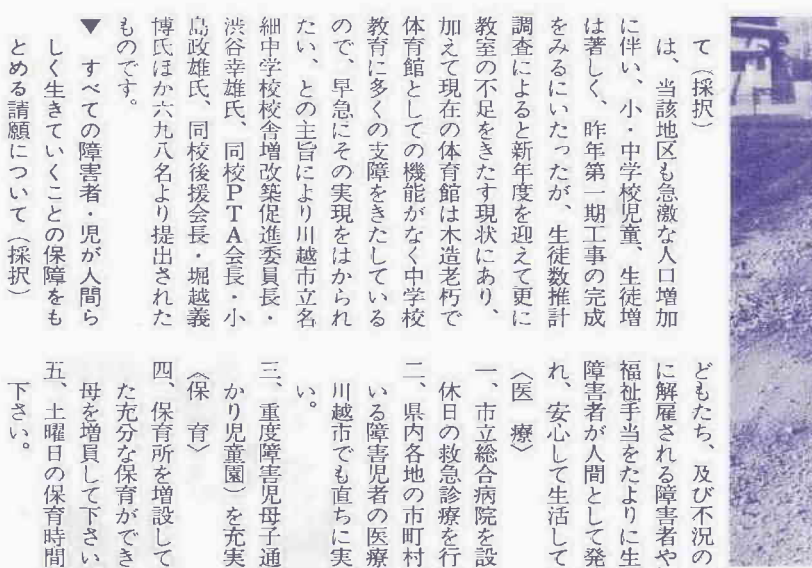 て（採択）
は、当該地区も急激な人口増加
に伴い、小・中学校児童、生徒増
は著しく、昨年第一期工事の完成
をみるにいたったが、生徒数推計
調査によると新年度を迎えて更に
教室の不足をきたす現状にあり、
加えて現在の体育館は木造老朽で
体育館としての機能がなく中学校
教育に多くの支障をきたしている
ので、早急にその実現をはかられ
たい、との主旨により川越市立名
細中学校校舎増改築促進委員長・
渋谷幸雄氏、同校PTA会長・小
島政雄氏、同校後援会長・堀越義
博氏ほか六九八名より提出された
ものです。
▼　すべての障害者・児が人間ら
しく生きていくことの保障をも
とめる請願について（採択）
どもたち、及び不況の
に解雇される障害者や
福祉手当をたよりに生
障害者が人間として発
れ、安心して生活して
〈医　療〉
一、市立総合病院を設
休日の救急診療を行
二、県内各地の市町村
いる障害児者の医療
川越市でも直ちに実
い。
三、重度障害児母子通
かり児童園）を充実
〈保　育〉
四、保育所を増設して
た充分な保育ができ
母を増員して下さい
五、土曜日の保育時間
下さい。